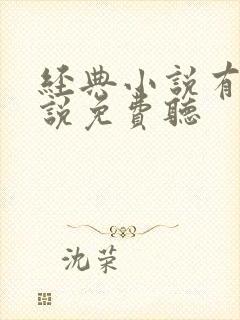 經典小說有
說免費聽
沈荣